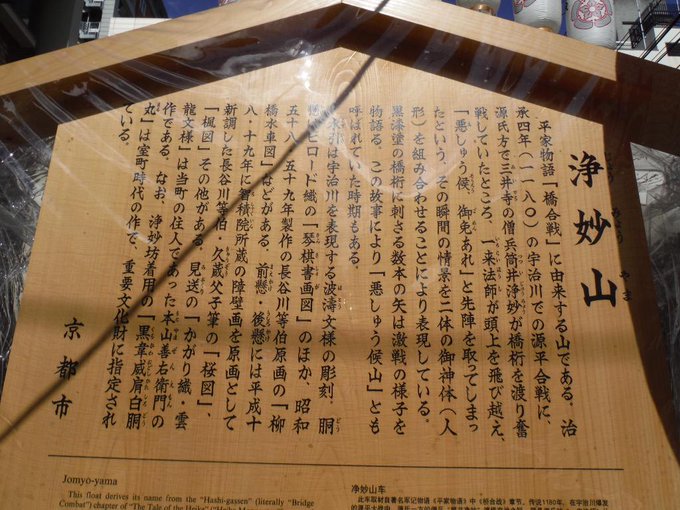 浄妙山
じょうみょうやま
平家物語「橋合戦」に由来する山である。治
承四年（一一八〇）の宇治川での源平合戦に、
源氏方で三井寺の僧兵筒井浄妙が橋桁を渡り奮
戦していたところ、一来法師が頭上を飛び越え、
「悪しゅう候、御免あれ」と先陣を取ってしまっ
たという、その瞬間の情景を二体の御神体（人
形）を組み合わせることにより表現している。
黒漆塗の橋桁に刺さる数本の矢は激戦の様子を
物語る。この故事により「悪しゅう候山」とも
呼ばれていた時期もある。
は宇治川を表現する波濤文様の彫刻、胴
懸はビロード織の「琴棋書画図」のほか、昭和
五十八・五十九年製作の長谷川等伯原画の「柳
橋水車図」などがある。前懸・後懸には平成十
八・十九年に智積院所蔵の障壁画を原画として
新調した長谷川等伯・久蔵父子筆の「桜図」、
「楓図」その他がある。見送の「かがり織・雲
龍文様」は当町の住人であった本山善右衛門の
作である。なお、浄妙坊着用の「黒韋威肩白胴
丸」は室町時代の作で、重要文化財に指定され
ている。
京都市
Jomyo-yama
This float derives its name from the "Hashi-gassen" (literally "Bridge
Combat") chapter of "The Tale of the Heike"
净妙山车
此车取材自著名军记物语《平家物语》中《桥合战》章节。传说1180年，在宇治川爆发